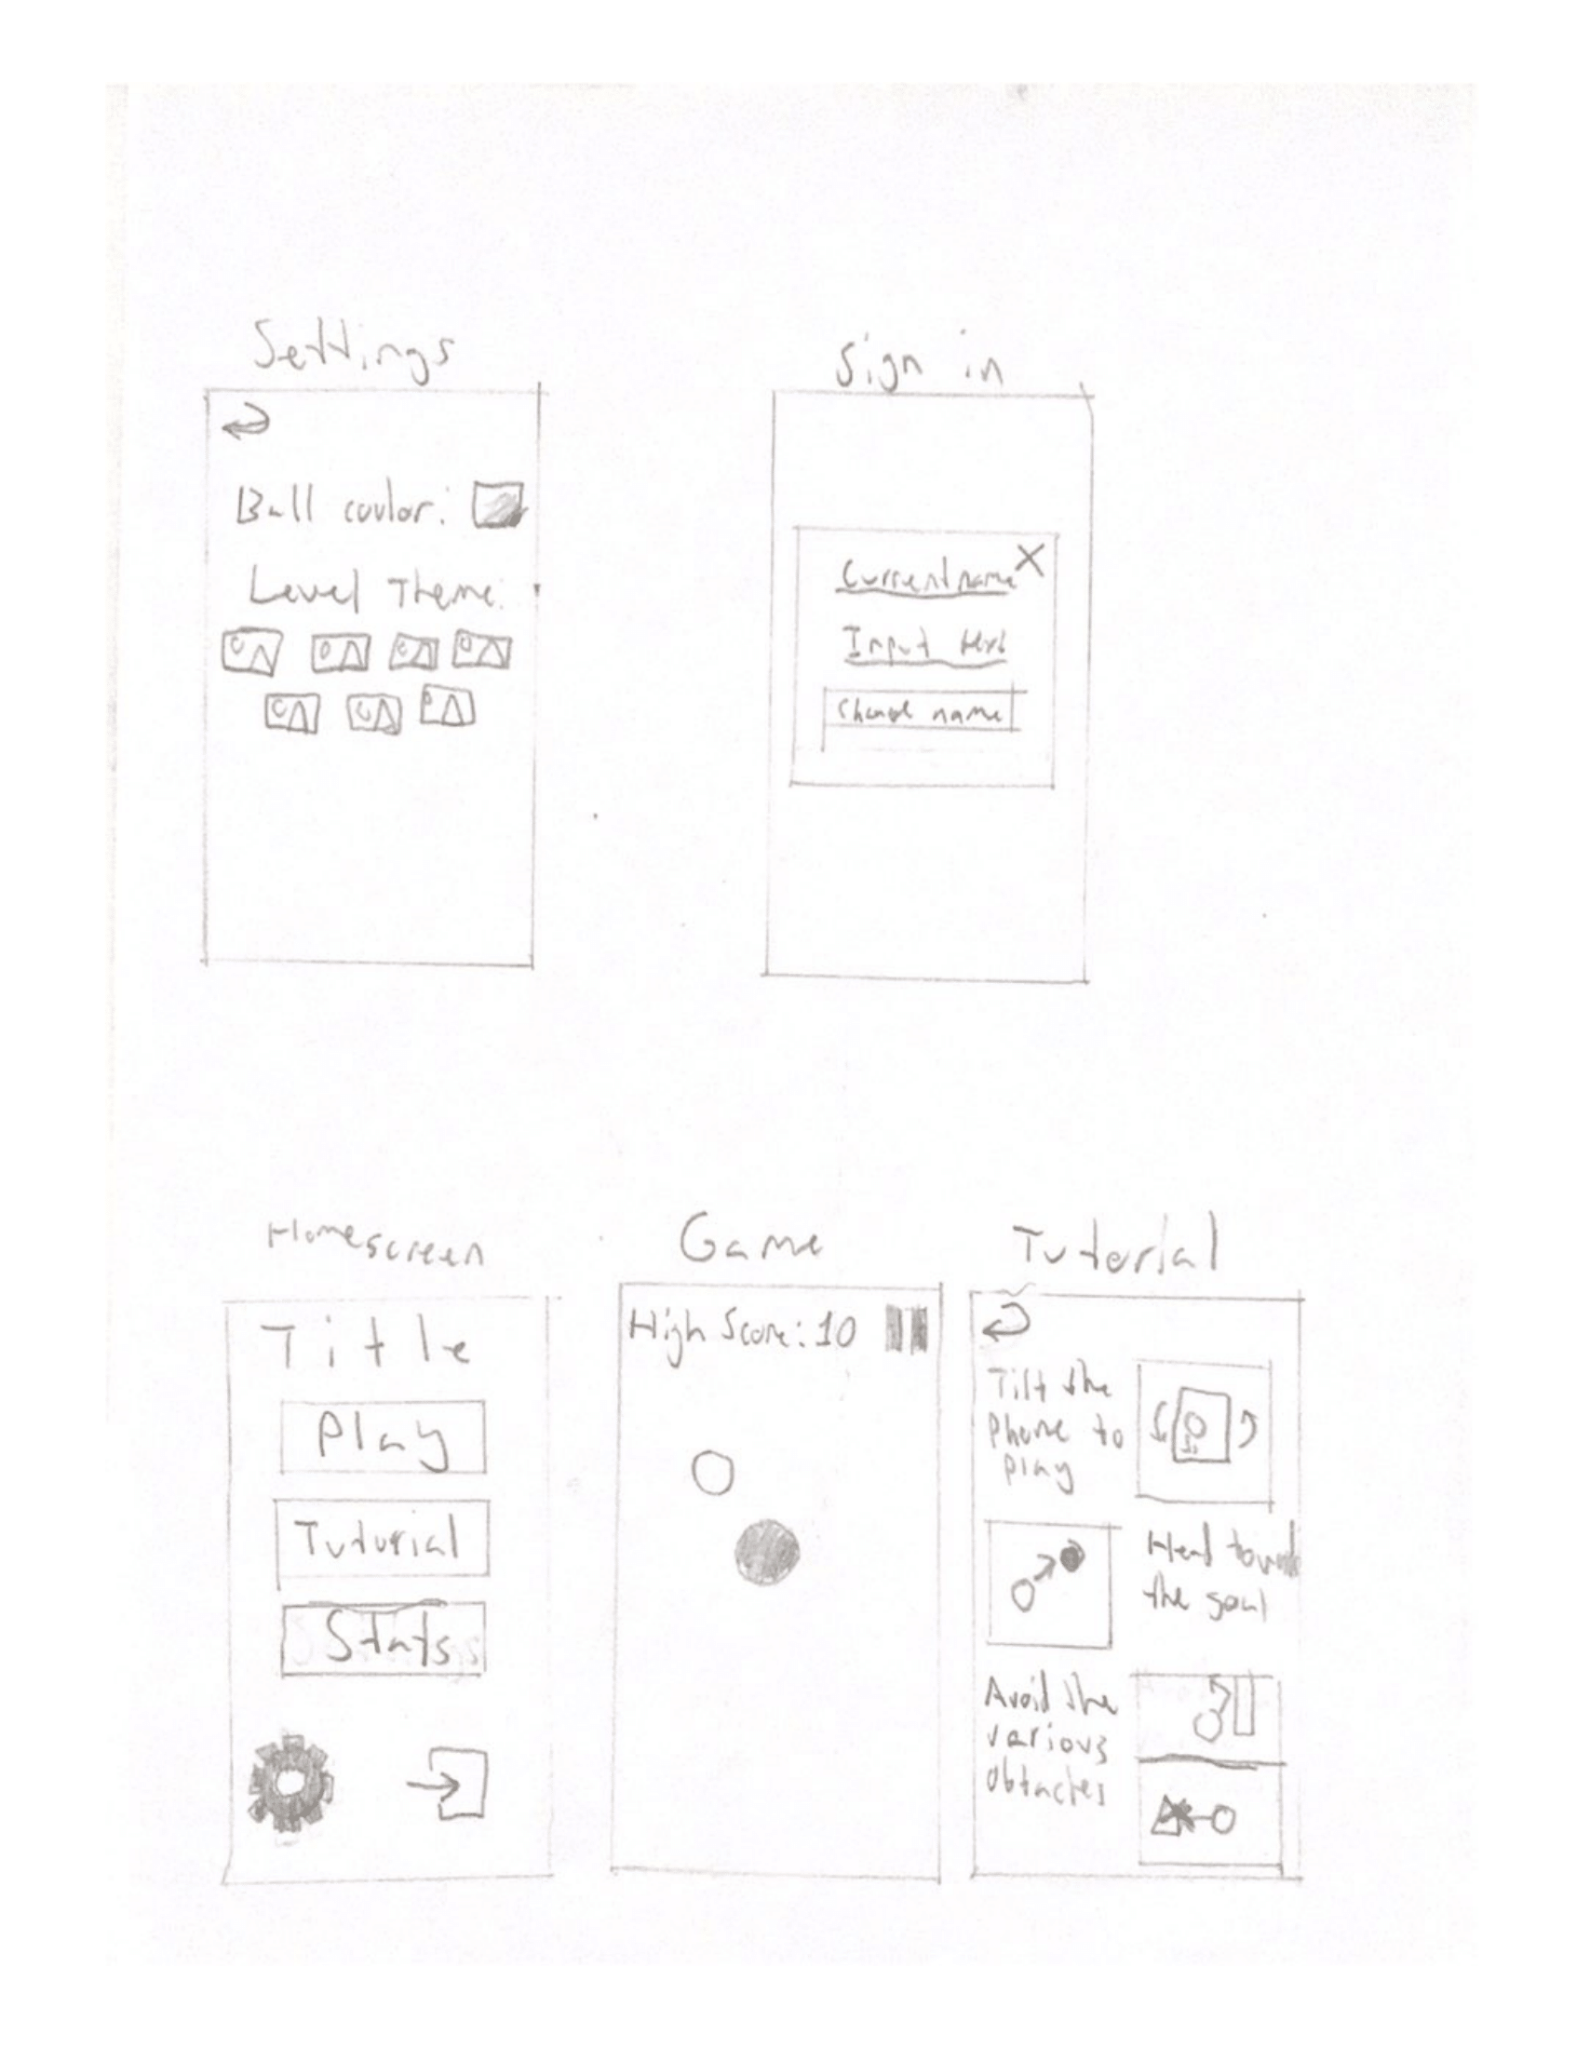 Settings
Ball coulor:
Level Theme:
Sign in
Current name
Input text
Change name
Homescreen
Title
Play
Tuturial
Stats
Game
High Score: 10
Tutorial
Tilt the
Phone to
play
Head towards
the goal
Avoid the
various
obtacles